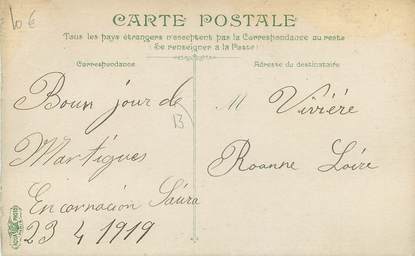 10 €
CARTE POSTALE
Tous les pays étrangers n'acceptent pas la Correspondance au recto
(Se renseigner à la Poste)
Correspondance
Adresse du destinataire
Boun jour de
13
Martigues
Encarnación Saura
23 4 1919
M Viviéré
Roanne Loire